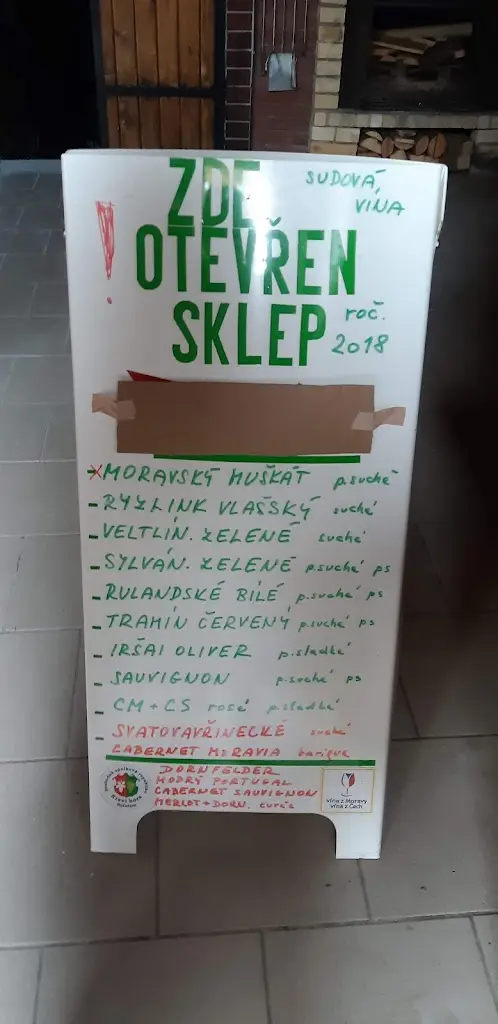 ZDE
OTEVŘEN
SKLEP
SUDOVÁ
VÍNA
roč.
2018
!
MORAVSKÝ MUŠKÁT p.suché
- RYZLINK VLAŠSKÝ suché
- VELTLÍN. ZELENÉ suché
- SYLVÁN. ZELENÉ p.suché ps
- RULANDSKÉ BÍLÉ p.suché ps
- TRAMÍN ČERVENÝ p.suché ps
- IRŠAI OLIVER p.sladké
- SAUVIGNON p.suché ps
- CM + CS rosé p.sladké
- SVATOVAVŘINECKÉ suché
CABERNET MORAVIA barique
DORNFELDER
MODRÝ PORTUGAL
CABERNET SAUVIGNON
MERLOT + DORN. cuvée
vína z Moravy
vína z Čech